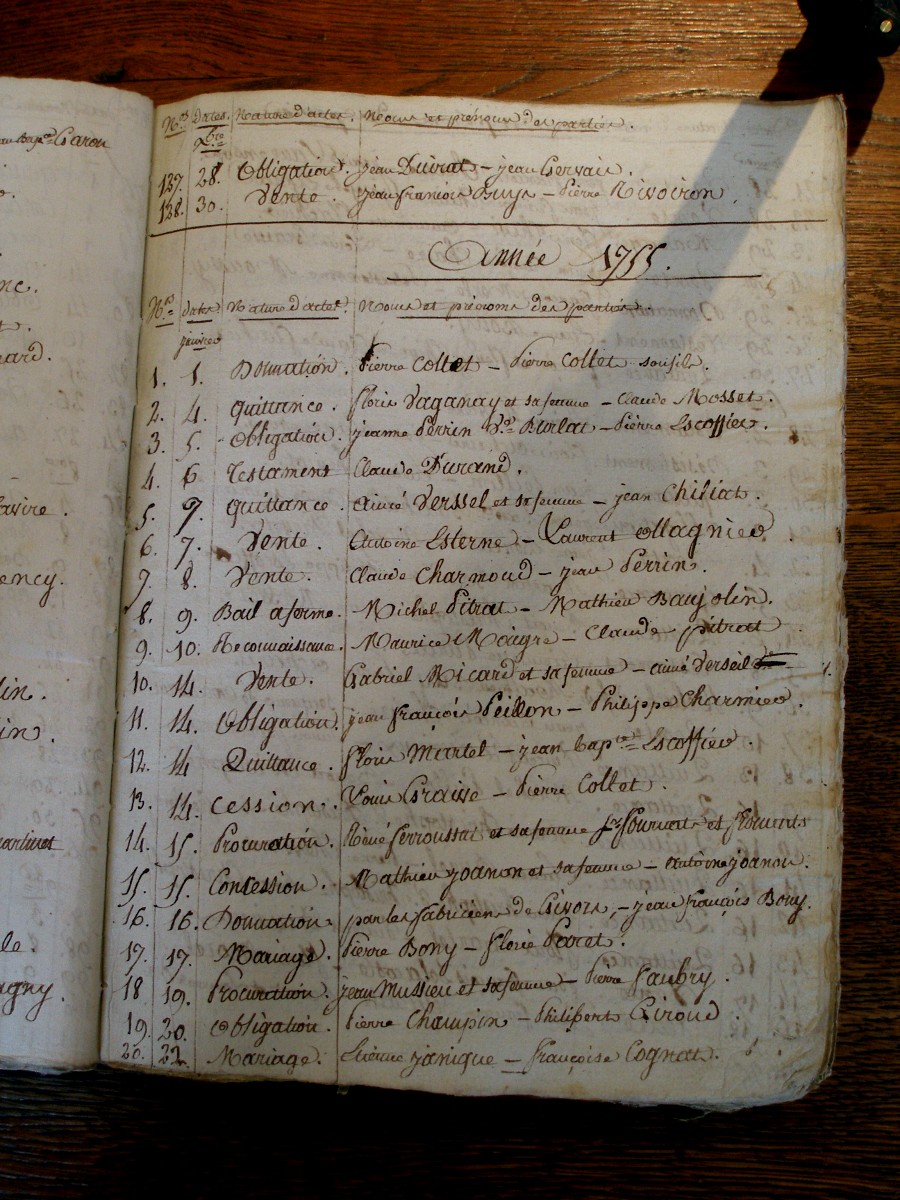 au bapte Caron
nc.
t.
ard.
avire.
ency.
lin.
in.
le.
agny.
Nos Dates. Nature d'actes. Noms et prénoms des parties.
Xbre
127. 28. Obligation. jean Duivat – jean Gervais.
128. 30. Vente. jean francois Buys – Pierre Rivoiron.
Année 1755.
Nos dates Nature d'actes. Noms et prénoms des parties.
janvier
1. 1. Donnation. Pierre Collet – Pierre Collet son fils.
2. 4. quittance. floris Vaganay et sa femme – Claude Mosset.
3. 5. obligation. jeanne Perrin Ve Burlat – Pierre Escoffier.
4. 6 Testament Claude Durand.
5. 7. quittance aimé Verssel et sa femme – jean Chiliat.
6. 7. Vente. Antoine Esterne – Laurent Ollagnier
7. 8. Vente. Claude Charmond – jean Perrin.
8. 9. Bail a ferme. Michel Pitrat – Mathieu Baujolin.
9. 10. Reconnaissance. Maurice Maigre – Claude pitrat
10. 14. Vente. Gabriel Micard et sa femme – aimé Verseil
11. 14. Obligation. jean françois Peillon – Philippe Charmier.
12. 14 Quittance. floris Martel – jean bapte Escoffier.
13. 14. Cession. Louis Graisse – Pierre Collet.
14. 15. Procuration. Réné ferroussat et sa femme et
15. 15. Concession. Mathieu joanon et sa femme – antoine joanon.
16. 16. Donnation par les fabriciens de Givors, – jean françois Bony.
17. 17. Mariage. Pierre Bony – florie Paret.
18 19. Procuration. jean Mussieu et sa femme – Pierre faubry.
19. 20. obligation. Pierre Champin – Philipert Giroud
20. 22. Mariage. Etienne janique – françoise Cognat.